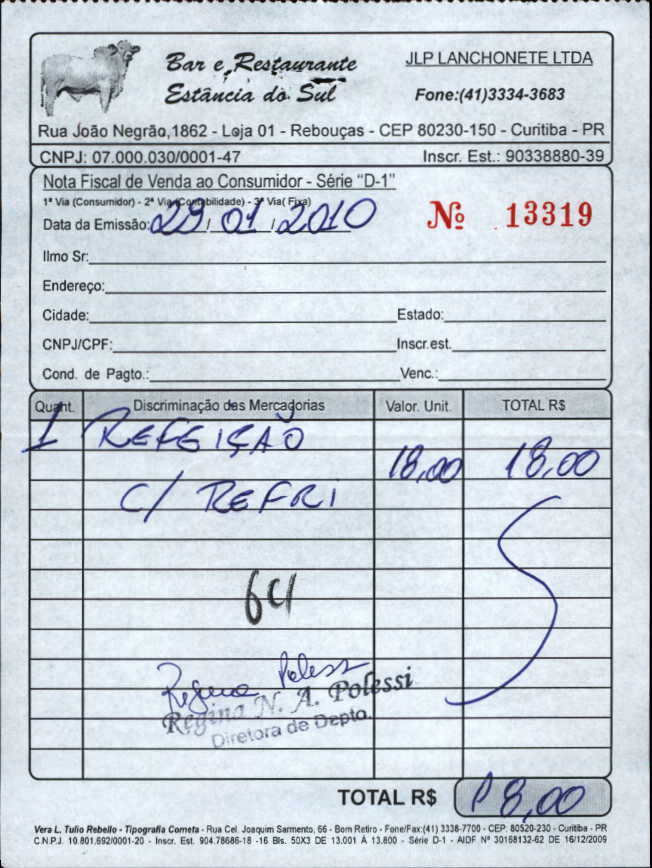 Bar e Restaurante
Estância do Sul
JLP LANCHONETE LTDA
Fone:(41)3334-3683
Rua João Negrão,1862 - Loja 01 - Rebouças - CEP 80230-150 - Curitiba - PR
CNPJ: 07.000.030/0001-47 Inscr. Est.: 90338880-39
Nota Fiscal de Venda ao Consumidor - Série "D-1"
1ª Via (Consumidor) - 2ª Via (Contabilidade) - 3ª Via( Fixa)
Data da Emissão: 29/01/2010 Nº 13319
Ilmo Sr:
Endereço:
Cidade: Estado:
CNPJ/CPF: Inscr.est.
Cond. de Pagto.: Venc.:
Quant. Discriminação das Mercadorias Valor. Unit. TOTAL R$
1 REFEIÇÃO 18,00 18,00
C/ REFRI
64
Regina Polessi
Regina N. A. Polessi
Diretora de Depto.
TOTAL R$ 18,00
Vera L. Tulio Rebello - Tipografia Cometa - Rua Cel. Joaquim Sarmento, 66 - Bom Retiro - Fone/Fax:(41) 3338-7700 - CEP: 80520-230 - Curitiba - PR
C.N.P.J. 10.801.692/0001-20 - Inscr. Est. 904.78686-18 -16 Bls. 50X3 DE 13.001 À 13.800 - Série D-1 - AIDF Nº 30168132-62 DE 16/12/2009